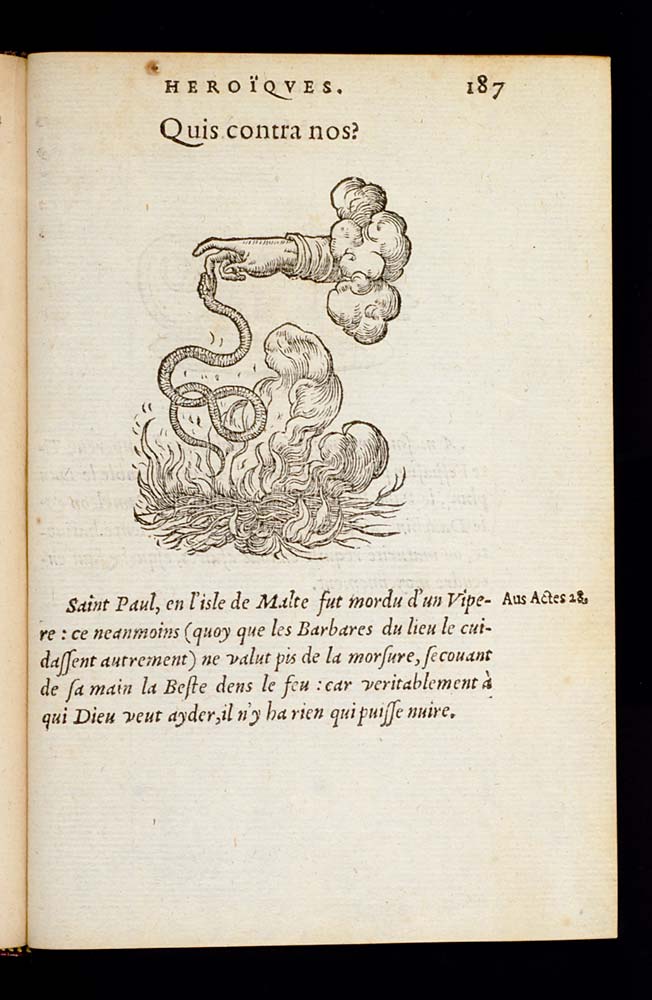 HEROÏQVES. 187
Quis contra nos?
Saint Paul, en l'isle de Malte fut mordu d'un Vipe- Aus Actes 28.
re : ce neanmoins (quoy que les Barbares du lieu le cui-
daſſent autrement) ne valut pis de la morſure, ſecouant
de ſa main la Beſte dens le feu : car veritablement à
qui Dieu veut ayder, il n'y ha rien qui puiſſe nuire.